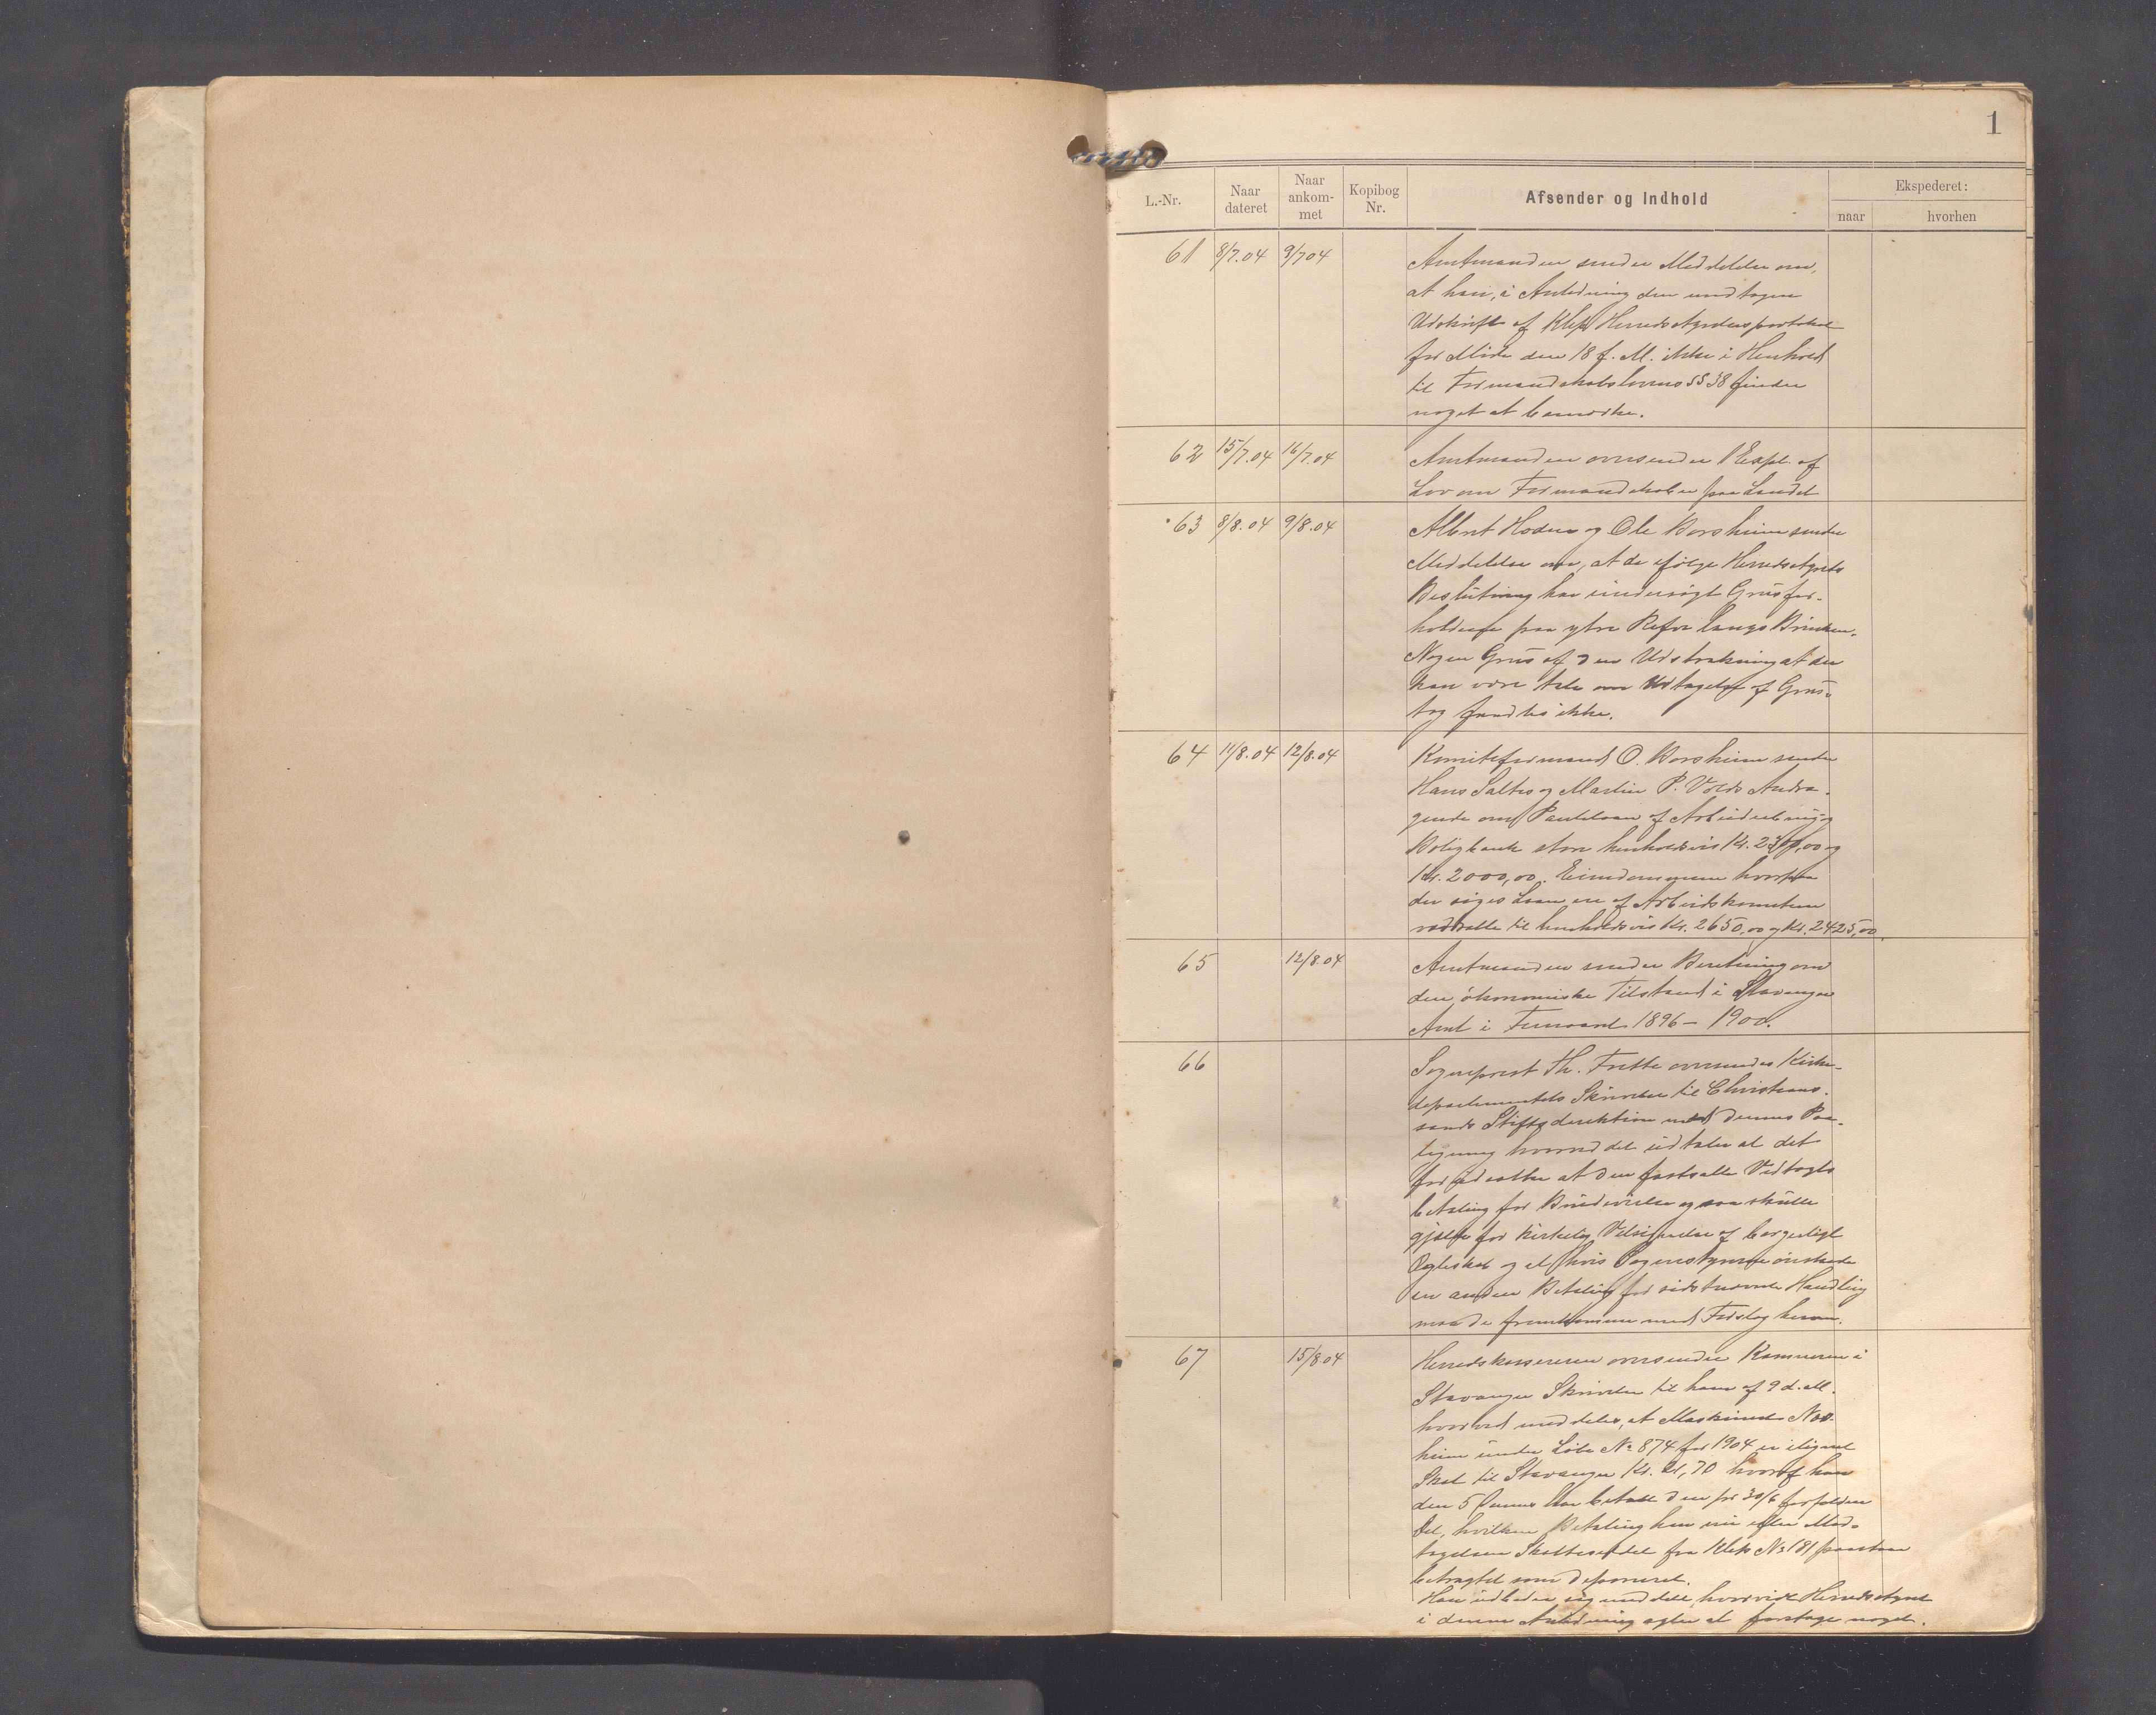 1
L.-Nr. Naar dateret Naar ankom-met Kopibog Nr. Afsender og Indhold Ekspederet:
naar hvorhen
61 8/7.04 9/7 04 Amtmanden sender Meddelelse om,
at han, i Anledning den modtagne
Udskrift af Klep Herredsstyrelsesprotokol
for Møde den 18 f. M. ikke i Henhold
til Formandskabslovens §§ 38 finder
noget at bemærke.
62 15/7.04 16/7.04 Amtmanden oversender 1 Expl. af
Lov om Formandskaber paa Landet
63 8/8.04 9/8.04 Albert Hodne og Ole Borsheim sender
Meddelelse om, at de ifølge Herredsstyrets
Beslutning har undersøgt Grusfor-
holdene paa ytre Refve langs Brinken.
Nogen Grus af den Udstrækning at der
kan være tale om Udtagelse af Grus-
tag fandtes ikke.
64 11/8.04 12/8.04 Komiteformand O. Borsheim sender
Hans Saltes og Martin P. Volds Andra-
gende om Pantelaan af Arbeiderbrug og
Boligbank stor henholdsvis Kr. 2300,00 og
Kr. 2000,00. Eiendommene hvorpaa
der søges Laan ere af Arbeidskomiteen
værdsatte til henholdsvis Kr. 2650,00 og Kr. 2425,00.
65 12/8.04 Amtmanden sender Beretning om
den økonomiske Tilstand i Stavanger
Amt i Femaaret 1896 – 1900.
66 Sogneprest Th. Frette oversender Kirke-
departementets Skrivelse til Christians-
sands Stiftsdirektion med dennes Paa-
tegning hvorved det udtaler at det
forudsatte at den fastsatte Vedtægts
betaling for Brudevielse ogsaa skulle
gjælde for kirkelig Velsignelse af borgerligt
Ægteskab og at hvis Sognestyrerne ønskede
en anden Betaling for sidstnævnte Handling
maa de fremkomme med Forslag herom.
67 15/8.04 Herredskassereren oversender Kæmneren i
Stavanger Skrivelse til ham af 9 d. M.
hvorved meddeles, at Maskinist
heim under Løbe No 874 for 1904 er ilignet
Skat til Stavanger Kr. 21,70 hvoraf han
den 5 har betalt den pr 30/6 forfaldne
Del, hvilken Betaling han nu efter Mod-
tagelsen Skatteseddel fra Klep No 181 paastaar
betragtet som deponeret.
Han udbeder sig meddelt, hvorvidt Herredsstyret
i denne Anledning agter at foretage noget.